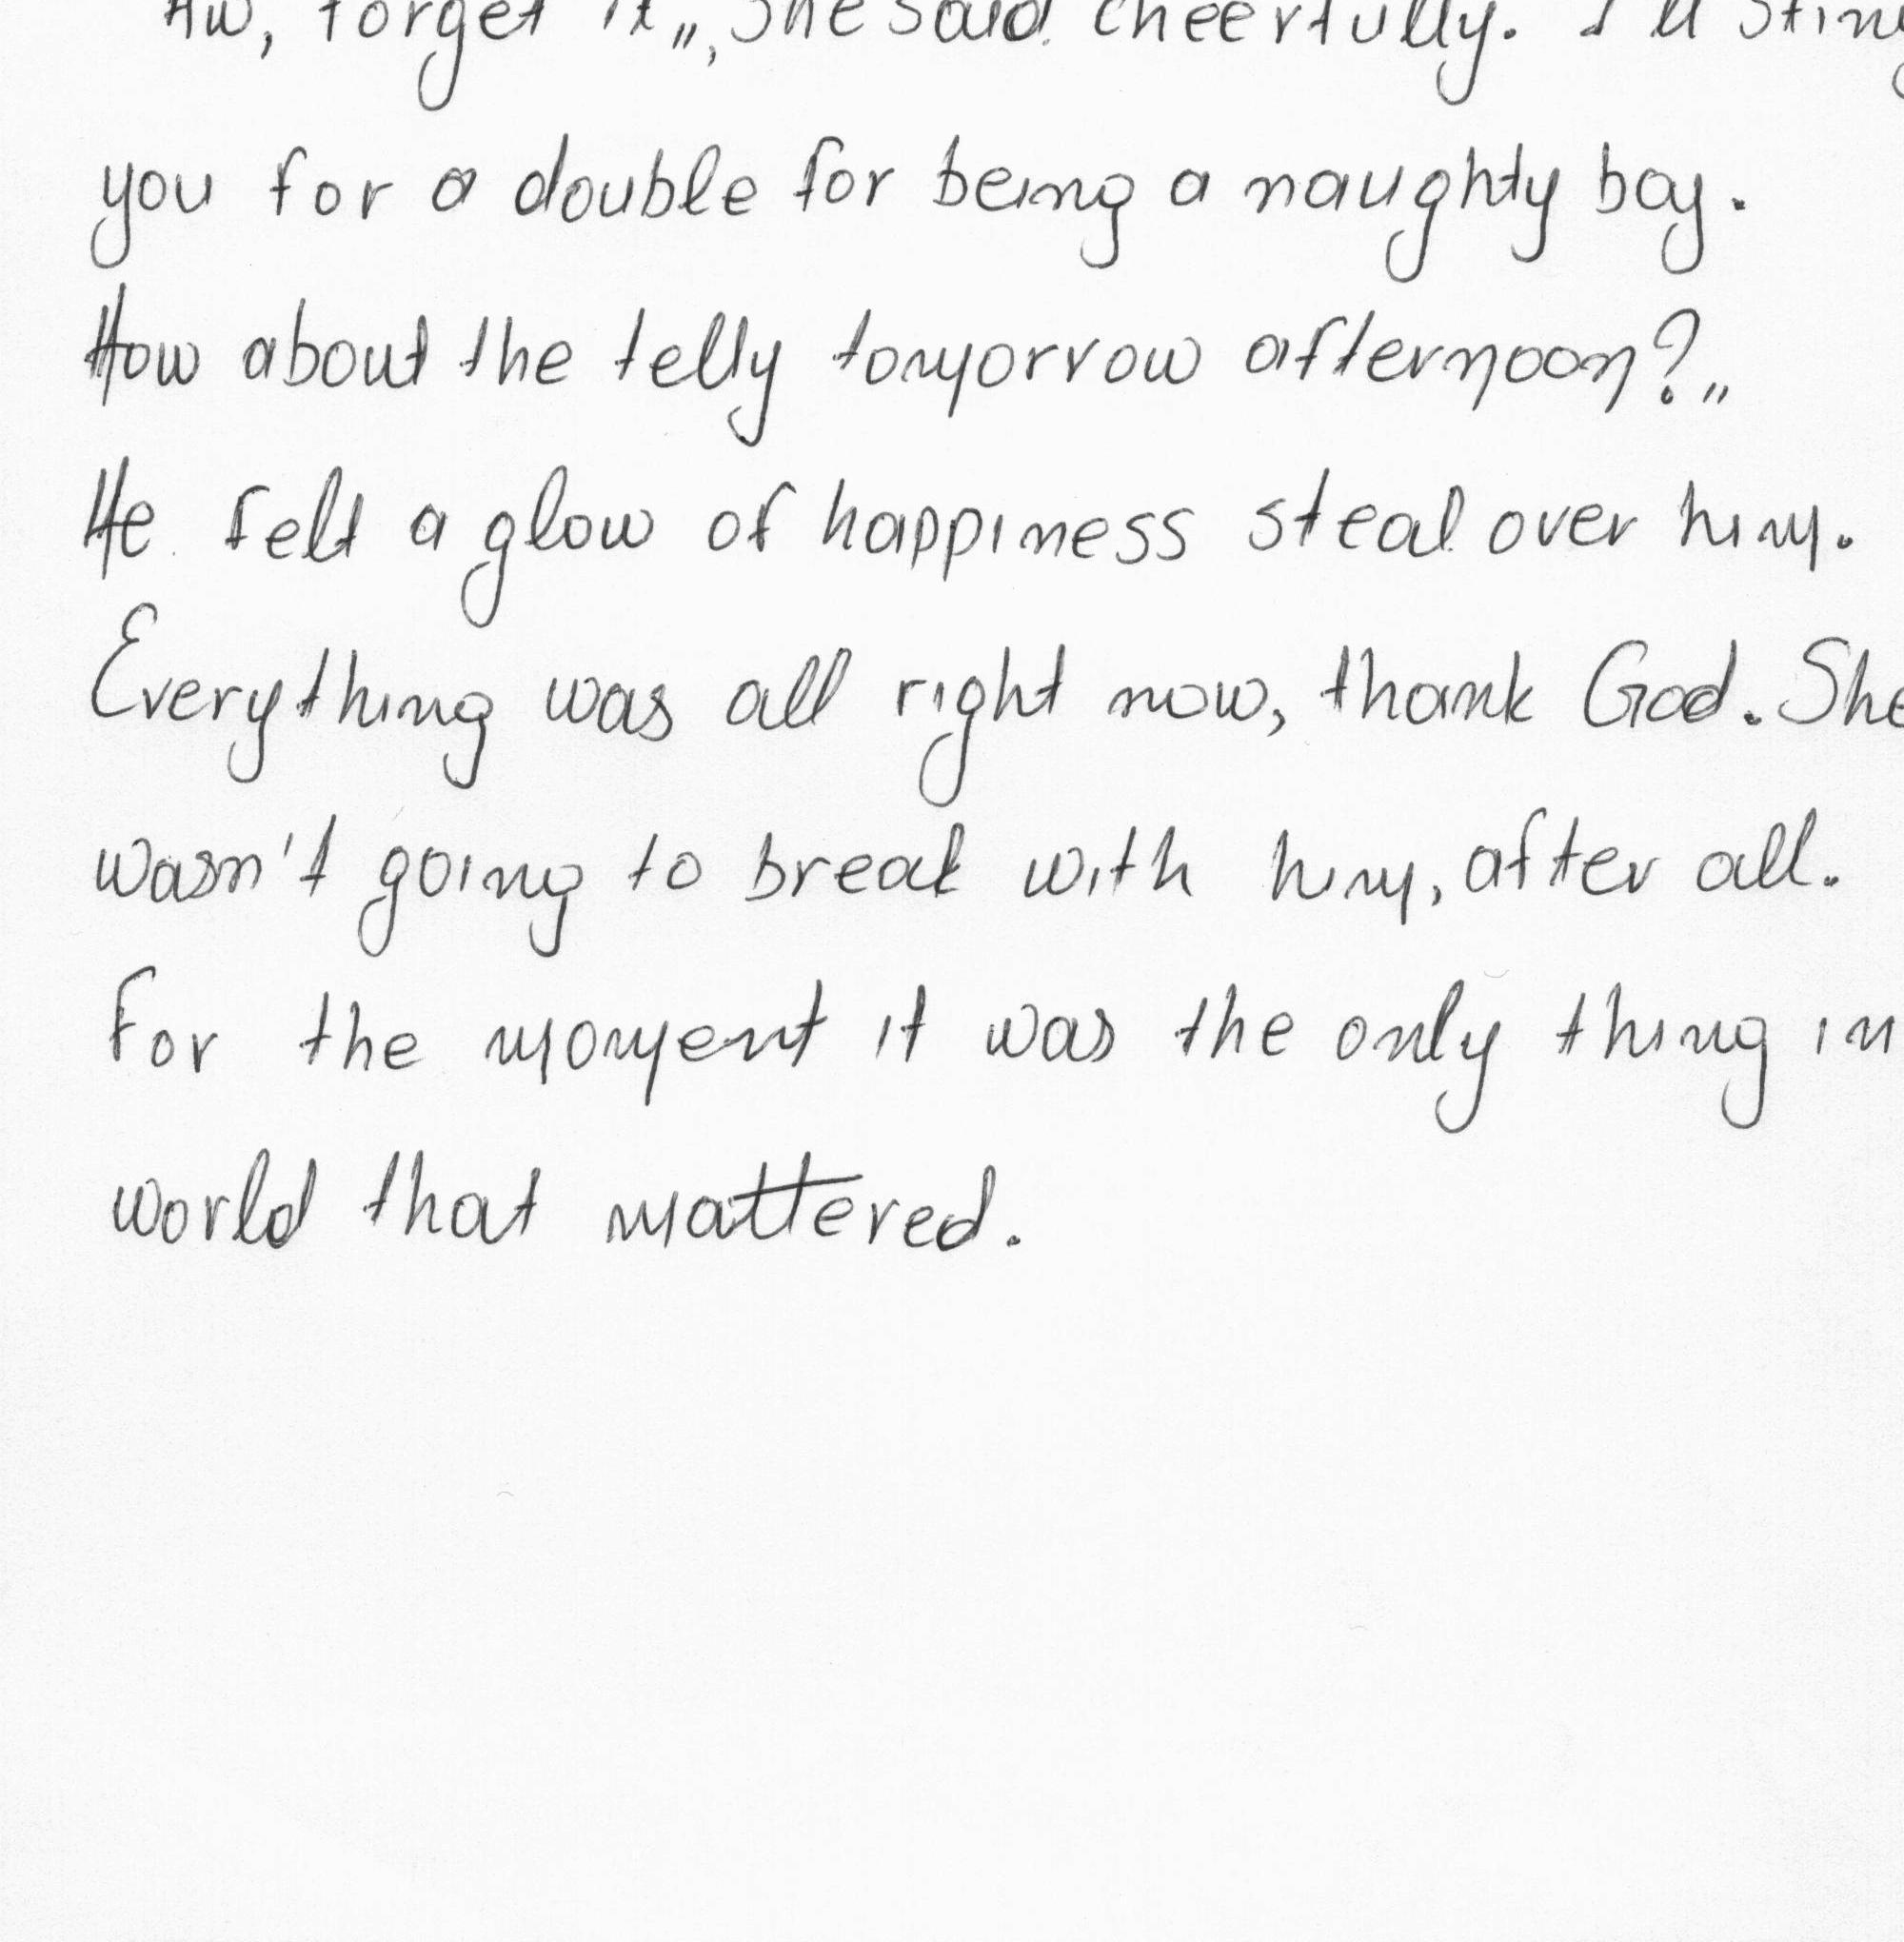 Aw, forget it", She said cheerfully. I'll sting
you for a double for being a naughty boy.
How about the telly tomorrow afternoon?"
He felt a glow of happiness steal over him.
Everything was all right now, thank God. She
wasn't going to break with him, after all.
For the moment it was the only thing in
world that mattered.